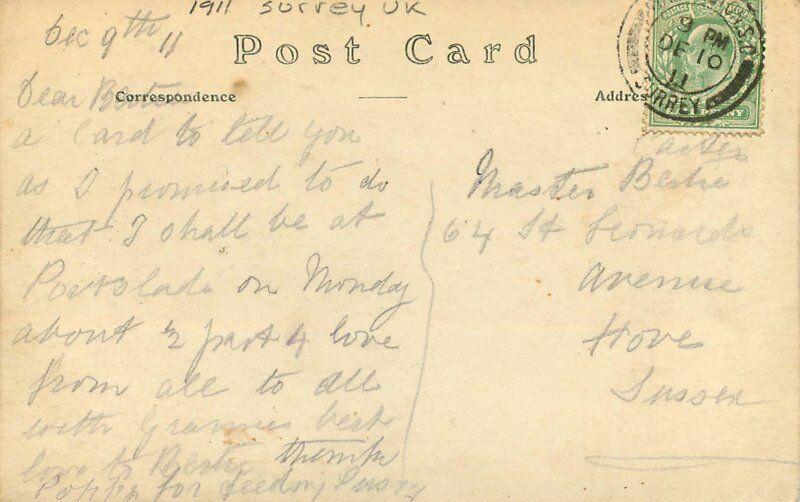 1911 Surrey UK
Dec 9th 11
Post Card
Correspondence
Address
9 PM
DE 10
11
SURREY
PENNY
Dear Bertie
a Card to tell you
as I promised to do
that I shall be at
Portslade on Monday
about 2 past 4 love
from all to all
with Grannies best
love to Bertie
Poppa for feeding Pussy
Carter
Master Bertie
64 St Leonards
Avenue
Hove
Sussex